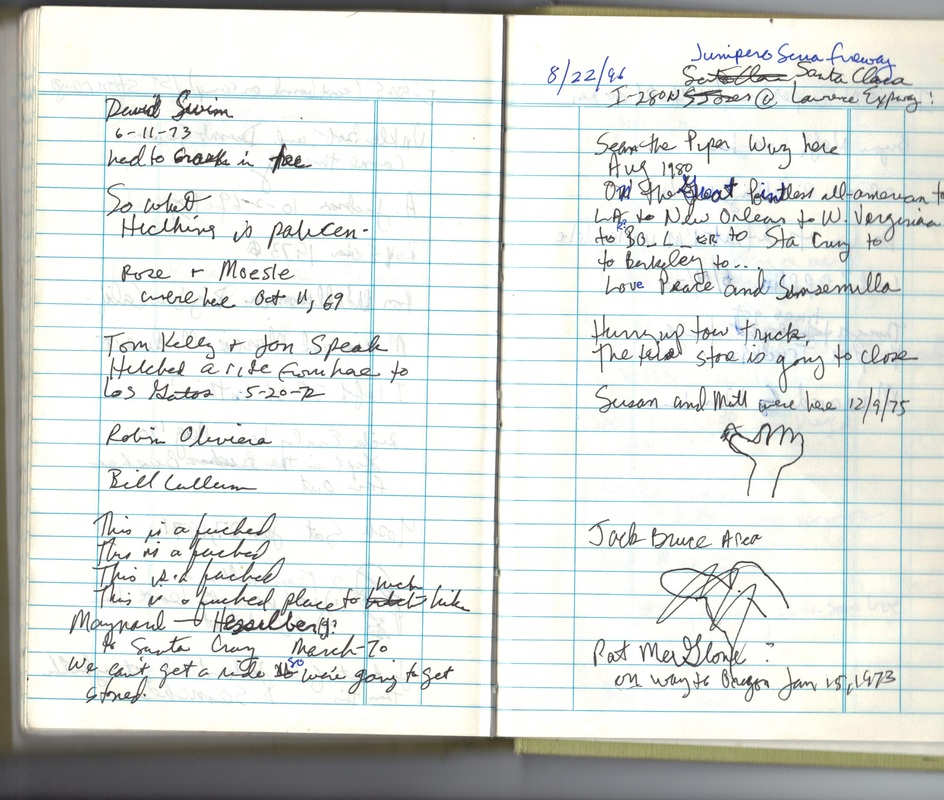 David Swim
6-11-73
had to crash in
So what
Hitching is
Rose + Moesle
were here Oct 11, 69
Tom Kelly + Jon Speak
Hitched a ride from here to
Los Gatos 5-20-72
Robin Oliviera
Bill Cullum
This is a fucked
This is a fucked
This is a fucked
This is a fucked place to hitch hike
Maynard
to Santa Cruz March-70
We can't get a ride so we're going to get
stoned.
Junipero Serra freeway
8/22/96 Santa Clara
I-280N @ Lawrence Expwy:
Sean the Piper Wuz here
Aug 1980
On the Great pointless all-american
LA to New Orleans to W. Verginia
to to Sta Cruz to
to Berkeley to...
Love Peace and Sensemilla
Hurry up tow truck,
The store is going to close
Susan and were here 12/9/75
Jack Bruce Area
Pat ?
on way to Oregon Jan 15, 1973